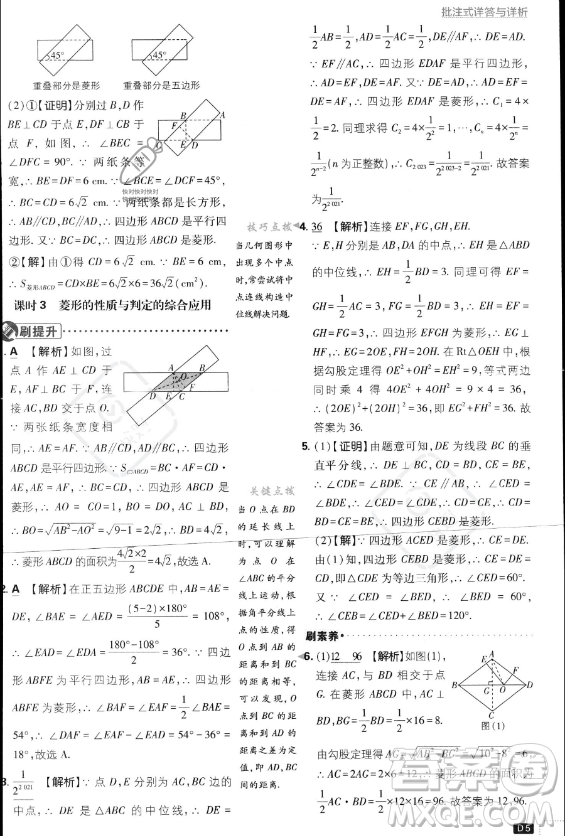 批注式详答与详析
45°
45°
重叠部分是菱形
重叠部分是五边形
(2)①【证明】分别过 B,D 作
BE⊥CD 于点 E,DF⊥CB 于
点 F,如图,∴ ∠BEC =
∠DFC = 90°. ∵ 两纸条等
宽,∴ BE=DF=6 cm. ∵ ∠BCE=∠DCF=45°,
∴ BC=CD=6√2 cm. ∵ 两纸条都是长方形,
∴ AB∥CD,BC∥AD,∴ 四边形 ABCD 是平行四
边形. 又∵ BC=DC,∴ 四边形 ABCD 是菱形.
②【解】由①得 CD=6√2 cm,BE=6 cm,
∴ S菱形ABCD=CD×BE=6√2×6=36√2(cm²).
课时 3 菱形的性质与判定的综合应用
刷提升
A 【解析】如图,过
点 A 作 AE⊥CD 于
E,AF⊥BC 于 F,连
接 AC,BD 交于点 O.
∵ 两张纸条宽度相
同,∴ AE=AF. ∵ AB∥CD,AD∥BC,∴ 四边形
ABCD 是平行四边形. ∵ S▱ABCD=BC·AF=CD·
AE. 又∵ AE=AF,∴ BC=CD,∴ 四边形 ABCD 是
菱形,∴ AO=CO=1,BO=DO,AC⊥BD,
∴ BO=√(AB²-AO²)=√(9-1)=2√2,∴ BD=4√2,
∴ 菱形 ABCD 的面积为 4√2×2/2=4√2,故选 A.
A 【解析】在正五边形 ABCDE 中,AB=AE=
DE,∠BAE=∠AED= (5-2)×180°/5 =108°,
∴ ∠EAD=∠EDA= (180°-108°)/2 =36°. ∵ 四边
形 ABFE 为平行四边形,AB=AE,∴ 四边形
ABFE 为菱形,∴ ∠FAE= 1/2 ∠BAE= 1/2 ×108°=
54°,∴ ∠FAD=∠FAE-∠EAD=54°-36°=
18°,故选 A.
1/2^2021 【解析】∵ 点 D,E 分别为 AC,BC 边的
中点,∴ DE 是 △ABC 的中位线,∴ DE=
技巧点拨
当几何图形中
出现多个中点
时,常尝试将中
点连线构造中
位线解决问题.
关键点拨
当 O 点在 BD
的延长线上
时,可以理解
为点 O 在
∠ABC 的平分
线上运动,根
据角平分线上
的点的性质,得
O 点到 AB 的
距离和到 BC
的距离相等,
O 点到 AD 的
距离和到 DC
的距离相等.
1/2 AB= 1/2 ,AD= 1/2 AC= 1/2 ,∴ DE=AD.
∵ EF∥AC,∴ 四边形 EDAF 是平行四边形,
∴ AD=EF,DE=AF. 又∵ DE=AD,∴ AD=
EF=DE=AF,∴ 四边形 EDAF 是菱形,∴ C₁=4×
1/2 . 同理求得 C₂=4× 1/2 × 1/2 =1,…,Cₙ=
1/2^(n-2) (n 为正整数),∴ C₂₀₂₃= 1/2^(2023-2) = 1/2^2021 . 故答案
为 1/2^2021 .
4. 36 【解析】连接 EF,FG,GH,EH.
∵ E,H 分别是 AB,DA 的中点,∴ EH 是△ABD
的中位线,∴ EH= 1/2 BD=3. 同理可得 EF=
GH= 1/2 AC=3,FG= 1/2 BD=3,∴ EH=EF=
GH=FG=3,∴ 四边形 EFGH 为菱形,∴ EG⊥
HF,∴ EG=2OE,FH=2OH. 在 Rt△OEH 中,根
据勾股定理得 OE²+OH²=EH²=9,等式两边
同时乘 4 得 4OE²+4OH²=9×4=36,
∴ (2OE)²+(2OH)²=36,即 EG²+FH²=36. 故
答案为 36.
5. (1)【证明】由题意可知,DE 为线段 BC 的垂
直平分线,∴ DE⊥BC,CD=BD,CE=BE,
∴ ∠CDE=∠BDE. ∵ CD=CE,∴ ∠CED=
∠BDE,∴ ∠CED=∠CDE,∴ CD=CE,∴ CD=CE=
BE=BD,∴ 四边形 CEBD 是菱形.
(2)【解】∵ 四边形 ACED 是菱形,∴ CE=DE.
由(1)知,四边形 CEBD 是菱形,∴ CE=CD,
∴ △CDE 为等边三角形,∴ ∠CED=60°,
∴ ∠CEB=∠CED+∠BED=120°.
刷素养
6. (1)12 96 【解析】如图(1),
连接 AC,与 BD 相交于点
G. 在菱形 ABCD 中,AC⊥
BD,BG= 1/2 BD= 1/2 ×16=8.
图(1)
由勾股定理得 AG=√(AB²-BG²)=√(10²-8²)=6,
∴ AC=2AG=2×6=12,∴ 菱形 ABCD 的面积为
1/2 AC·BD= 1/2 ×12×16=96. 故答案为 12,96.
D5